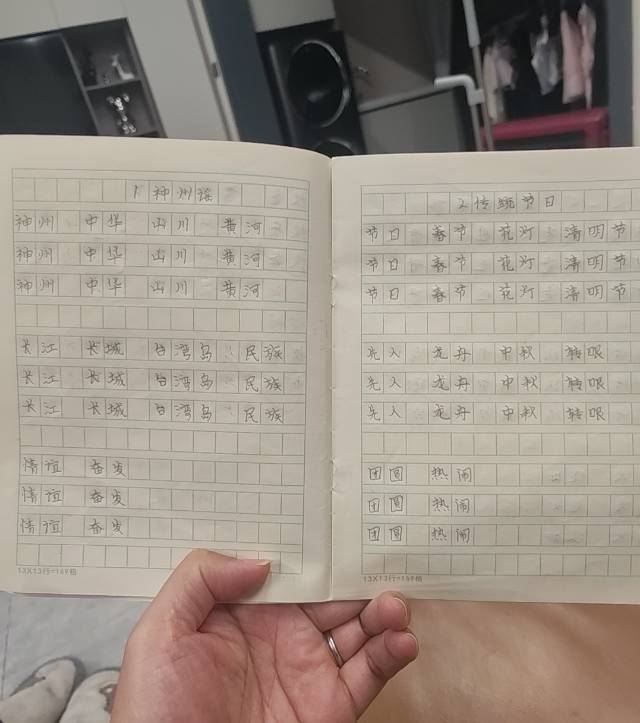 1 神州谣
神州 中华 山川 黄河
神州 中华 山川 黄河
神州 中华 山川 黄河
长江 长城 台湾岛 民族
长江 长城 台湾岛 民族
长江 长城 台湾岛 民族
情谊 奋发
情谊 奋发
情谊 奋发
13X13行=169格
2 传统节日
节日 春节 花灯 清明节
节日 春节 花灯 清明节
节日 春节 花灯 清明节
先人 龙舟 中秋 转眼
先人 龙舟 中秋 转眼
先人 龙舟 中秋 转眼
团圆 热闹
团圆 热闹
团圆 热闹
13X13行=169格